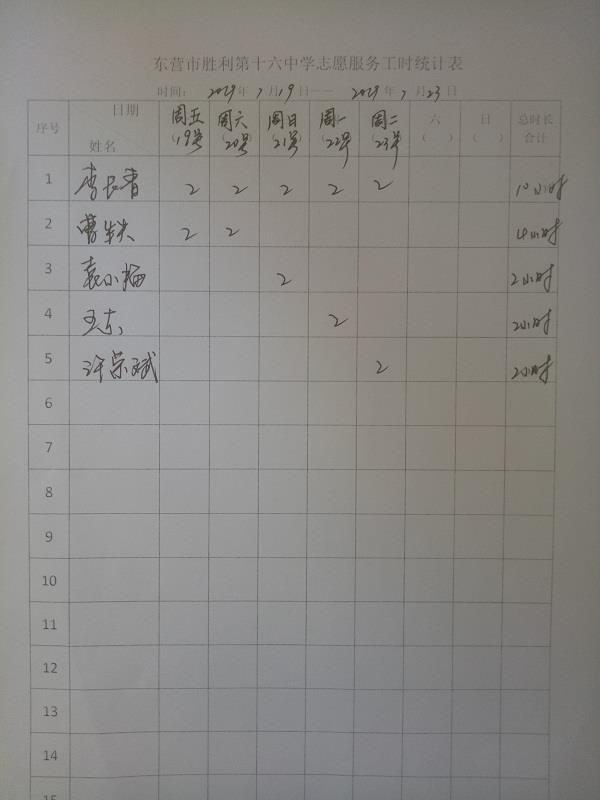 东营市胜利第十六中学志愿服务工时统计表
时间：2019年7月19日——2019年7月23日
序号 日期 姓名 周五（19号） 周六（20号） 周日（21号） 周一（22号） 周二（23号） 六（ ） 日（ ） 总时长合计
1 李长青 2 2 2 2 2 10小时
2 曹 2 2 4小时
3 袁小梅 2 2小时
4 王东 2 2小时
5 许荣斌 2 2小时
6
7
8
9
10
11
12
13
14
15